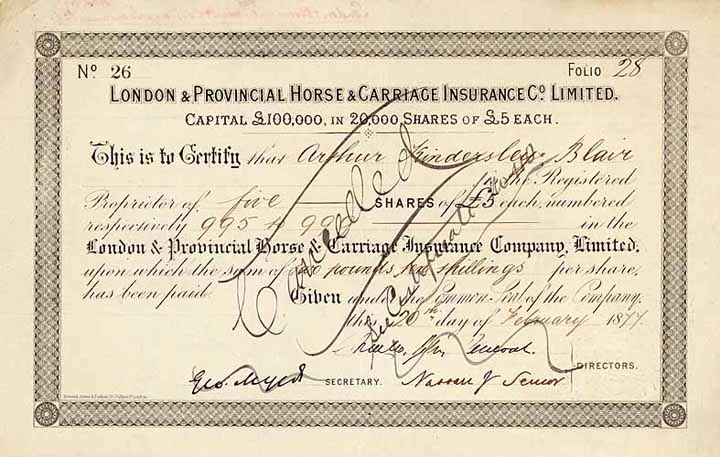 Nº 26 FOLIO 28
LONDON & PROVINCIAL HORSE & CARRIAGE INSURANCE Cº LIMITED.
CAPITAL £100,000, IN 20,000 SHARES OF £5 EACH.
This is to Certify that Arthur Kindersley Blair
is the Registered
Proprietor of five SHARES of £5 each, numbered
respectively 995 to 99 in the
London & Provincial Horse & Carriage Insurance Company, Limited,
upon which the sum of two pounds ten shillings per share,
has been paid. Given under the Common Seal of the Company.
the 20th day of February 1877.
Cancelled
See Certificate
DIRECTORS.
Geo. Myers SECRETARY. Nassau J Senior